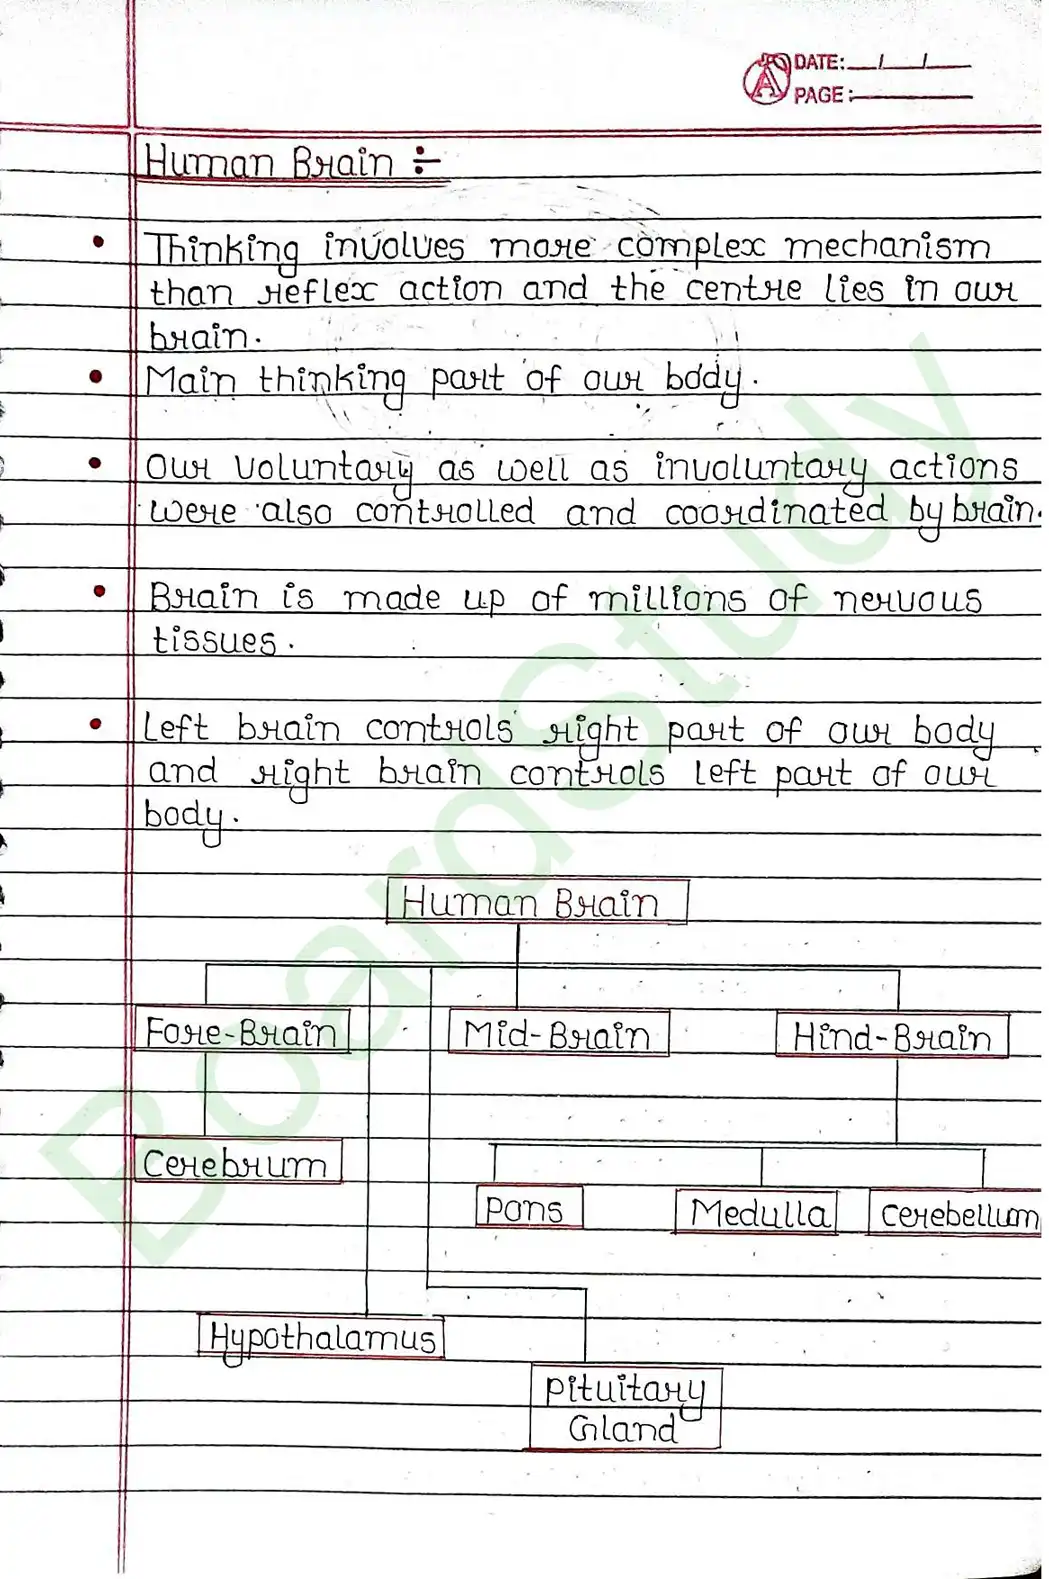 DATE: __/__/__
PAGE:
Human Brain ÷
• Thinking involves more complex mechanism
than reflex action and the centre lies in our
brain.
• Main thinking part of our body.
• Our voluntary as well as involuntary actions
were also controlled and coordinated by brain.
• Brain is made up of millions of nervous
tissues.
• Left brain controls right part of our body
and right brain controls left part of our
body.
Human Brain
Fore-Brain Mid-Brain Hind-Brain
Cerebrum
Pons Medulla Cerebellum
Hypothalamus
Pituitary
Gland
BoardStudy